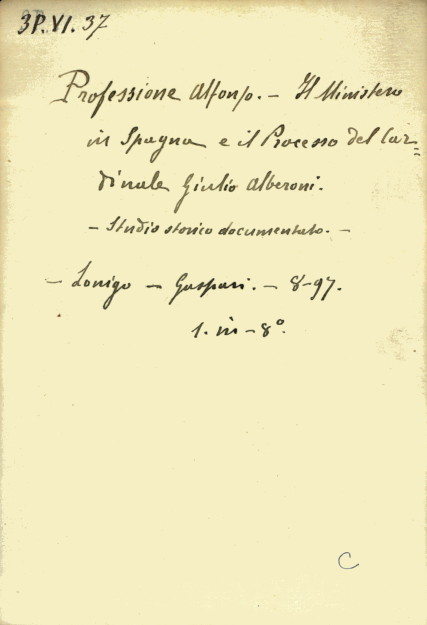 3P.VI.37
Professione Alfonso. - Il Ministero
in Spagna e il Processo del Car=
dinale Giulio Alberoni.
- Studio storico documentato. -
- Lonigo - Gaspari. - 8-97.
1. in-8º.
C